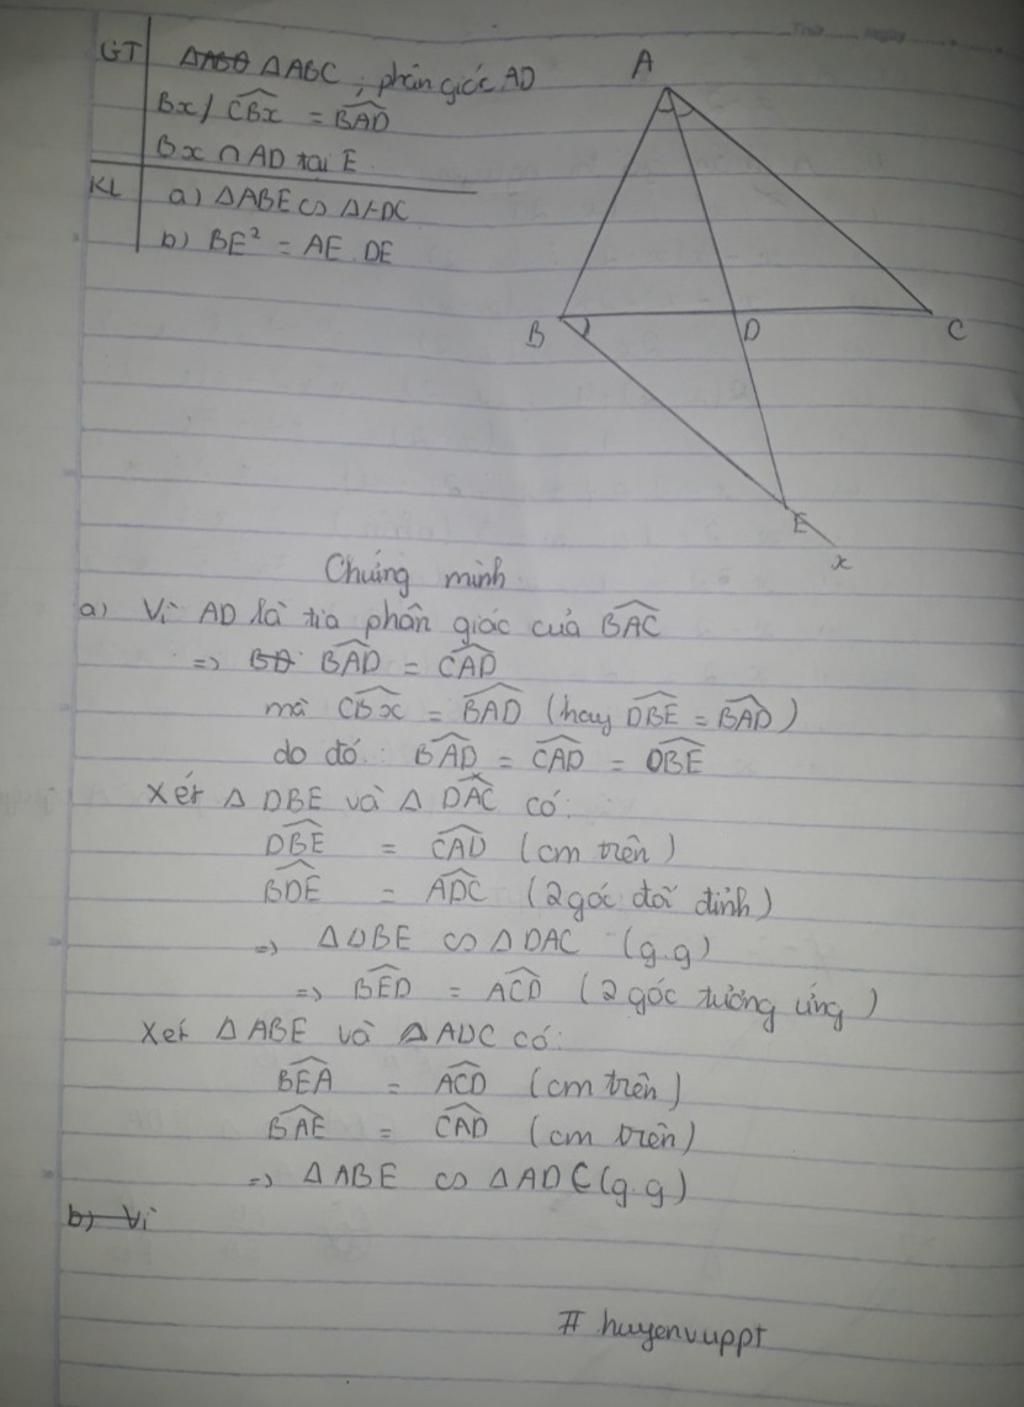 GT
ΔABC ; phân giác AD
Bx / CBx = BAD
Bx ∩ AD tại E
KL
a) ΔABE ∽ ΔADC
b) BE² = AE . DE
A
B
D
C
E
x
Chứng minh
a) Vì AD là tia phân giác của BAC
=> BAD = CAD
mà CBx = BAD (hay DBE = BAD)
do đó: BAD = CAD = DBE
Xét Δ DBE và Δ DAC có:
DBE = CAD (cm trên)
BDE = ADC (2 góc đối đỉnh)
=> Δ DBE ∽ Δ DAC (g.g)
=> BED = ACD (2 góc tương ứng)
Xét Δ ABE và Δ ADC có:
BEA = ACD (cm trên)
BAE = CAD (cm trên)
=> Δ ABE ∽ Δ ADC (g.g)
b) Vì
# huyenvuppt